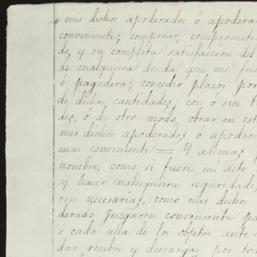 mis dichos apoderados ó apodera
conveniente; componer, comprometer
de, y en completa satisfaccion del
ó cualquiera deuda que me fue
ó pagadera; conceder plazo por
de dichas cantidades, con ó sin f
des, ó de otro modo, obrar en est
mis dichos apoderados ó apoder
mas conveniente = Y ademas
nombre, como si fuere mi acto
y hacer cualesquiera seguridades
ren necesarias, como mis dichos
derado juzgaren conveniente pa
ó cada una de los objetos ante d
dar recibos y descargos por to